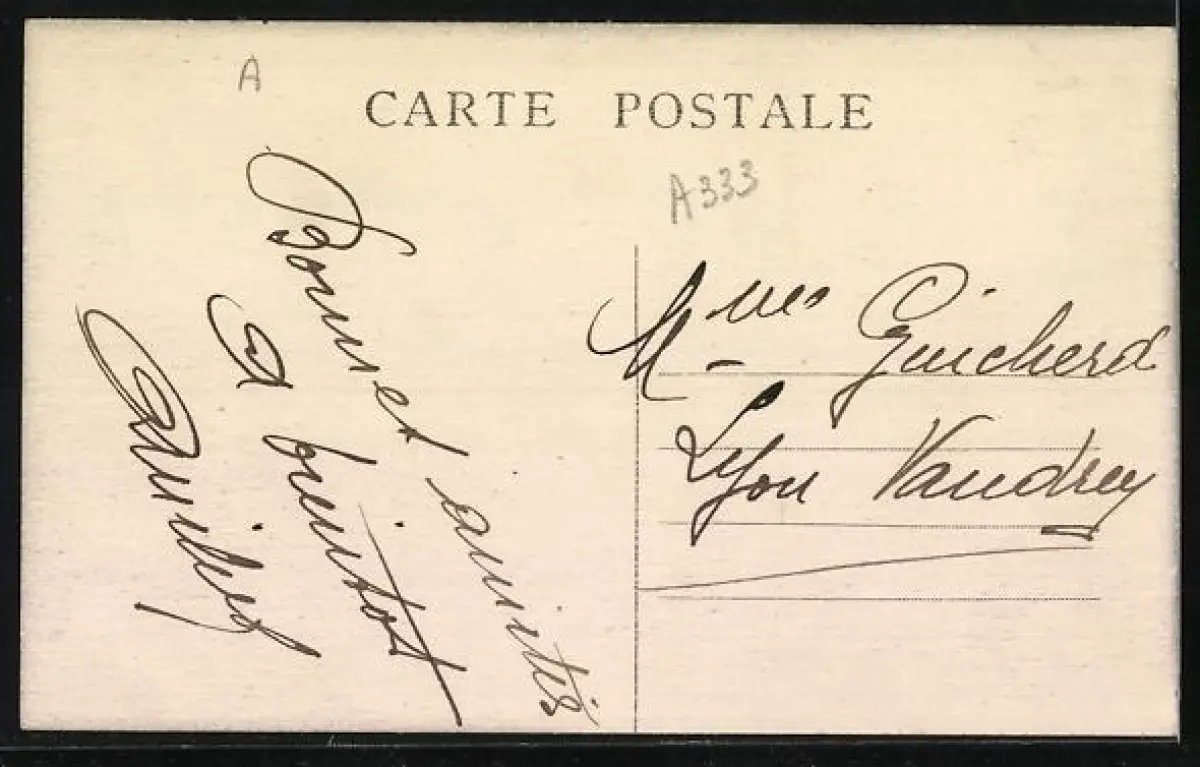 A
CARTE POSTALE
A333
Bonnes amitiés
A bientot
Mme Guicherd
Lyon Vaudrey